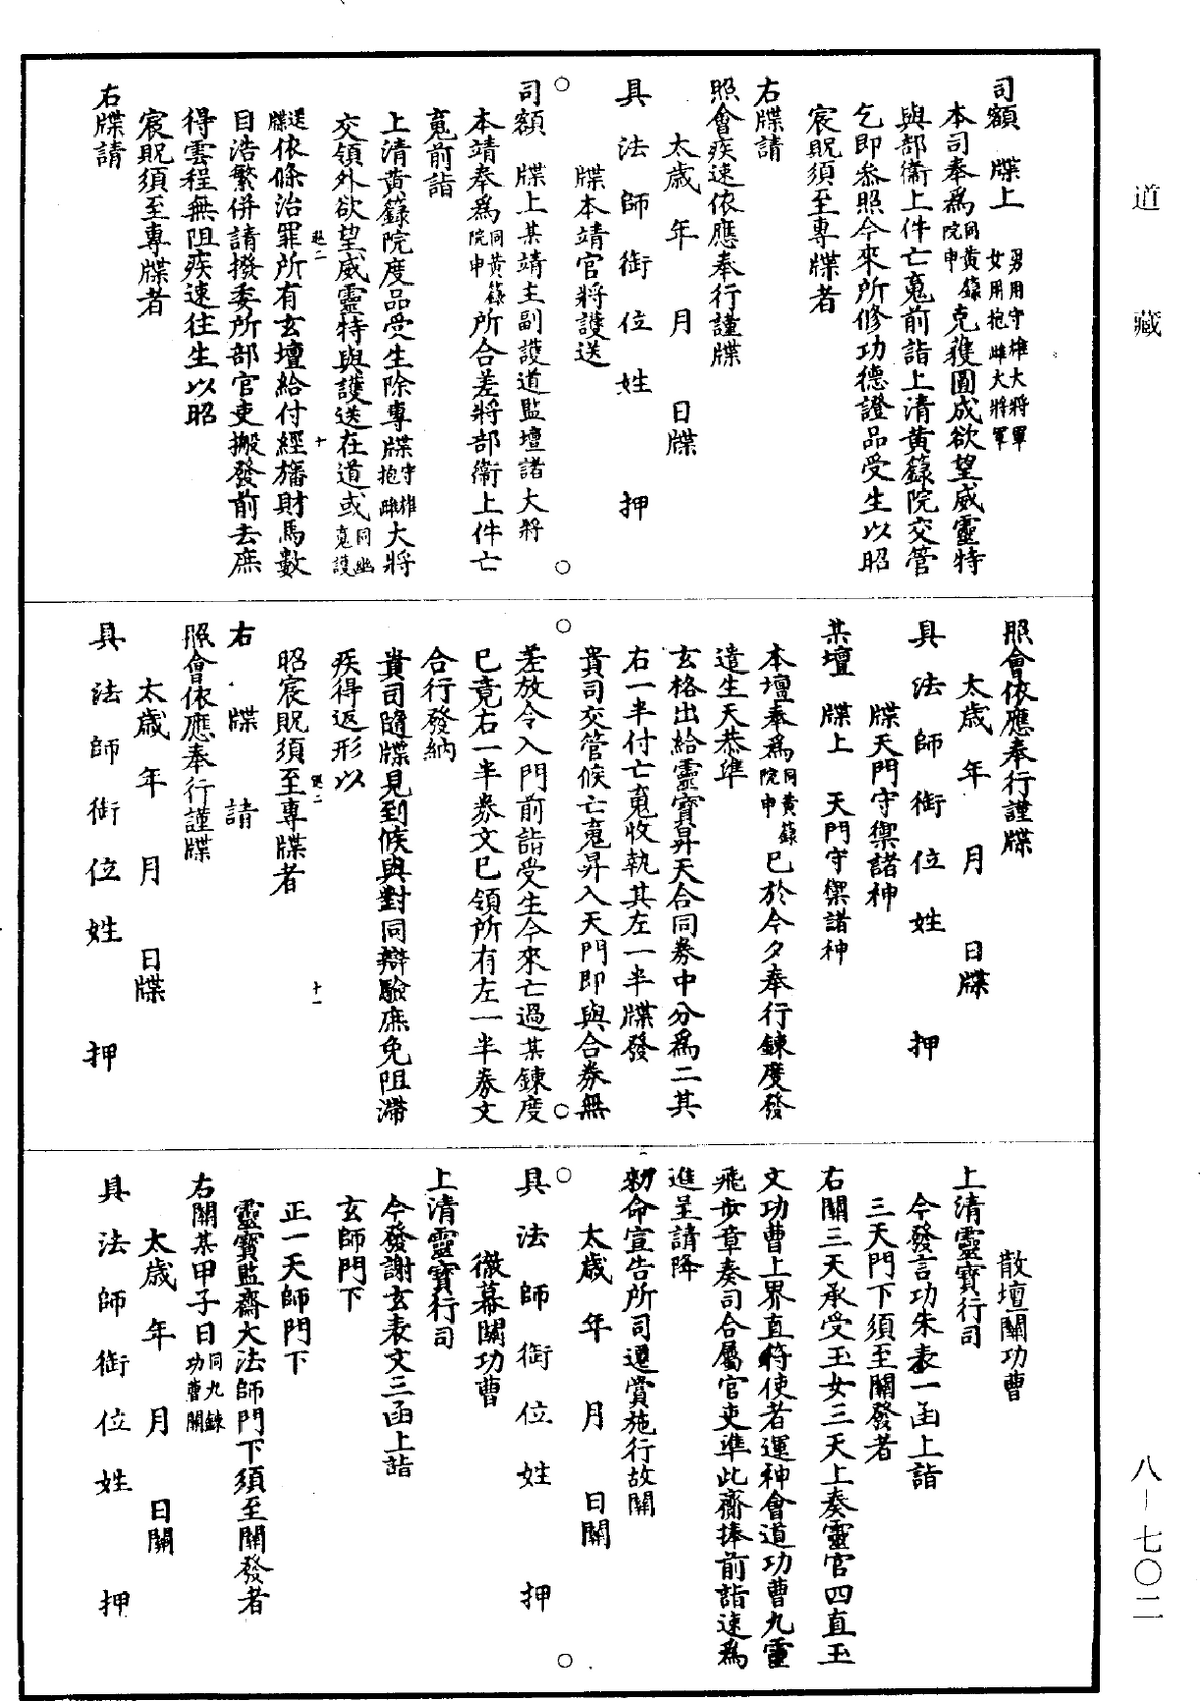 道藏
司額　牒上　男用守雄大將軍女用抱雌大將軍
本司奉為同黃籙院申克獲圓成欲望威靈特
與部衛上件亡䰟前詣上清黃籙院交管
乞即參照今來所修功德證品受生以昭
宸貺須至專牒者
右牒請
照會疾速依應奉行謹牒
太歲　年　月　日牒
具法師銜位姓　押
牒本靖官將護送
司額　牒上某靖主副護道監壇諸大將
本靖奉為同黃籙院申所合差將部衛上件亡
䰟前詣
上清黃籙院度品受生除專牒守雄抱雌大將
交領外欲望威靈特與護送在道或同幽䰟護
送牒依條治罪所有玄壇給付經旛財馬數
目浩繁併請撥委所部官吏搬發前去庶
得雲程無阻疾速往生以昭
宸貺須至專牒者
右牒請
照會依應奉行謹牒
太歲　年　月　日牒
具法師銜位姓　押
牒天門守禦諸神
某壇　牒上　天門守禦諸神
本壇奉為同黃籙院申已於今夕奉行鍊度發
遣生天恭準
玄格出給靈寶昇天合同券中分為二其
右一半付亡䰟收執其左一半牒發
貴司交管候亡䰟昇入天門即與合券無
差放令入門前詣受生今來亡過某鍊度
已竟右一半券文已領所有左一半券文
合行發納
貴司隨牒見到候與對同辯驗庶免阻滯
疾得返形以
昭宸貺須至專牒者
右牒請
照會依應奉行謹牒
太歲　年　月　日牒
具法師銜位姓　押
散壇關功曹
上清靈寶行司
今發言功朱表一函上詣
三天門下須至關發者
右關三天承受玉女三天上奏靈官四直玉
文功曹上界直符使者運神會道功曹九靈
飛步章奏司合屬官吏準此齎捧前詣速為
進呈請降
勑命宣告所司遷賞施行故關
太歲　年　月　日關
具法師銜位姓　押
徹幕關功曹
上清靈寶行司
今發謝玄表文三函上詣
玄師門下
正一天師門下
靈寶監齋大法師門下須至關發者
右關某甲子日同九鍊功曹關
太歲　年　月　日關
具法師銜位姓　押
八－七〇二